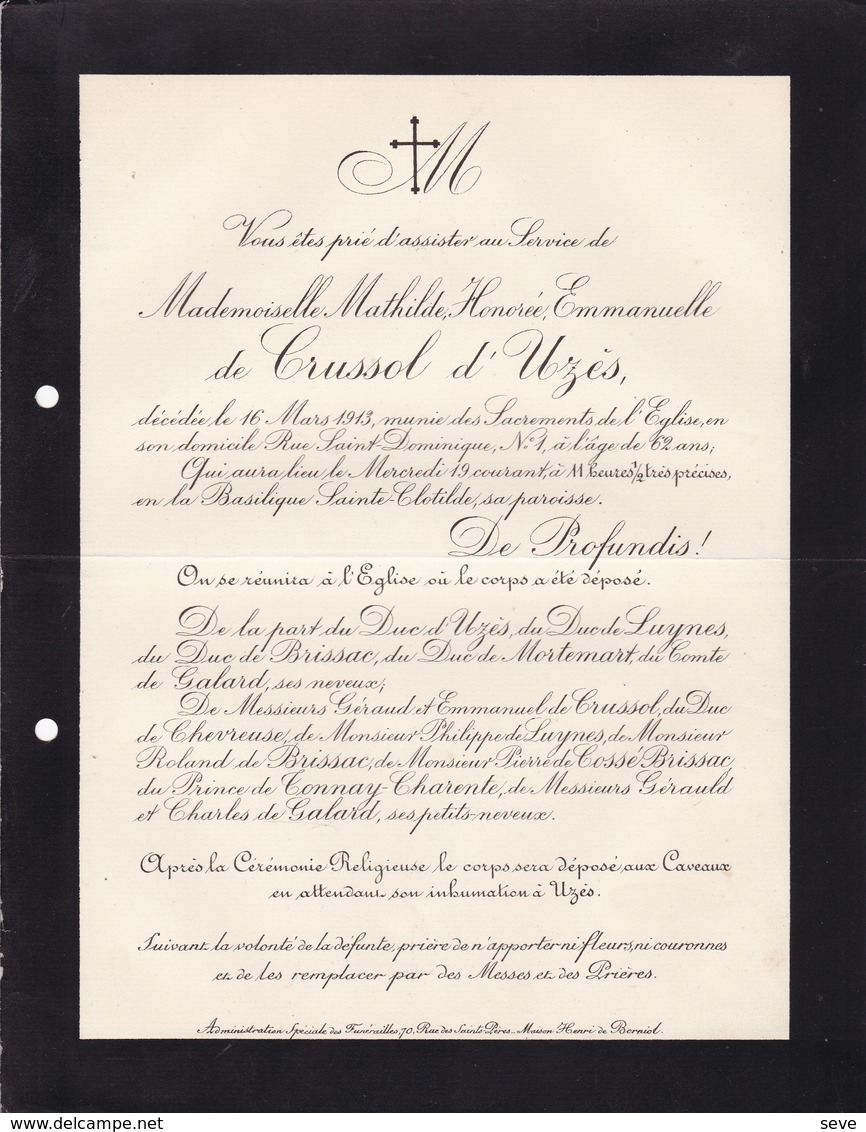 M
Vous êtes prié d'assister au Service de
Mademoiselle Mathilde, Honorée, Emmanuelle
de Crussol d'Uzès,
décédée le 16 Mars 1913, munie des Sacrements de l'Eglise, en
son domicile Rue Saint-Dominique, N° 1, à l'âge de 62 ans;
Qui aura lieu le Mercredi 19 courant, à 11 heures 1/2 très précises,
en la Basilique Sainte-Clotilde, sa paroisse.
De Profundis!
On se réunira à l'Eglise où le corps a été déposé.
De la part du Duc d'Uzès, du Duc de Luynes,
du Duc de Brissac, du Duc de Mortemart, du Comte
de Galard, ses neveux;
De Messieurs Géraud et Emmanuel de Crussol, du Duc
de Chevreuse, de Monsieur Philippe de Luynes, de Monsieur
Roland de Brissac, de Monsieur Pierre de Cossé Brissac,
du Prince de Tonnay-Charente, de Messieurs Gérauld
et Charles de Galard, ses petits-neveux.
Après la Cérémonie Religieuse le corps sera déposé aux Caveaux
en attendant son inhumation à Uzès.
Suivant la volonté de la défunte, prière de n'apporter ni fleurs, ni couronnes
et de les remplacer par des Messes et des Prières.
Administration Spéciale des Funérailles, 70, Rue des Saints-Pères_Maison Henri de Borniol.
www.delcampe.net
seve